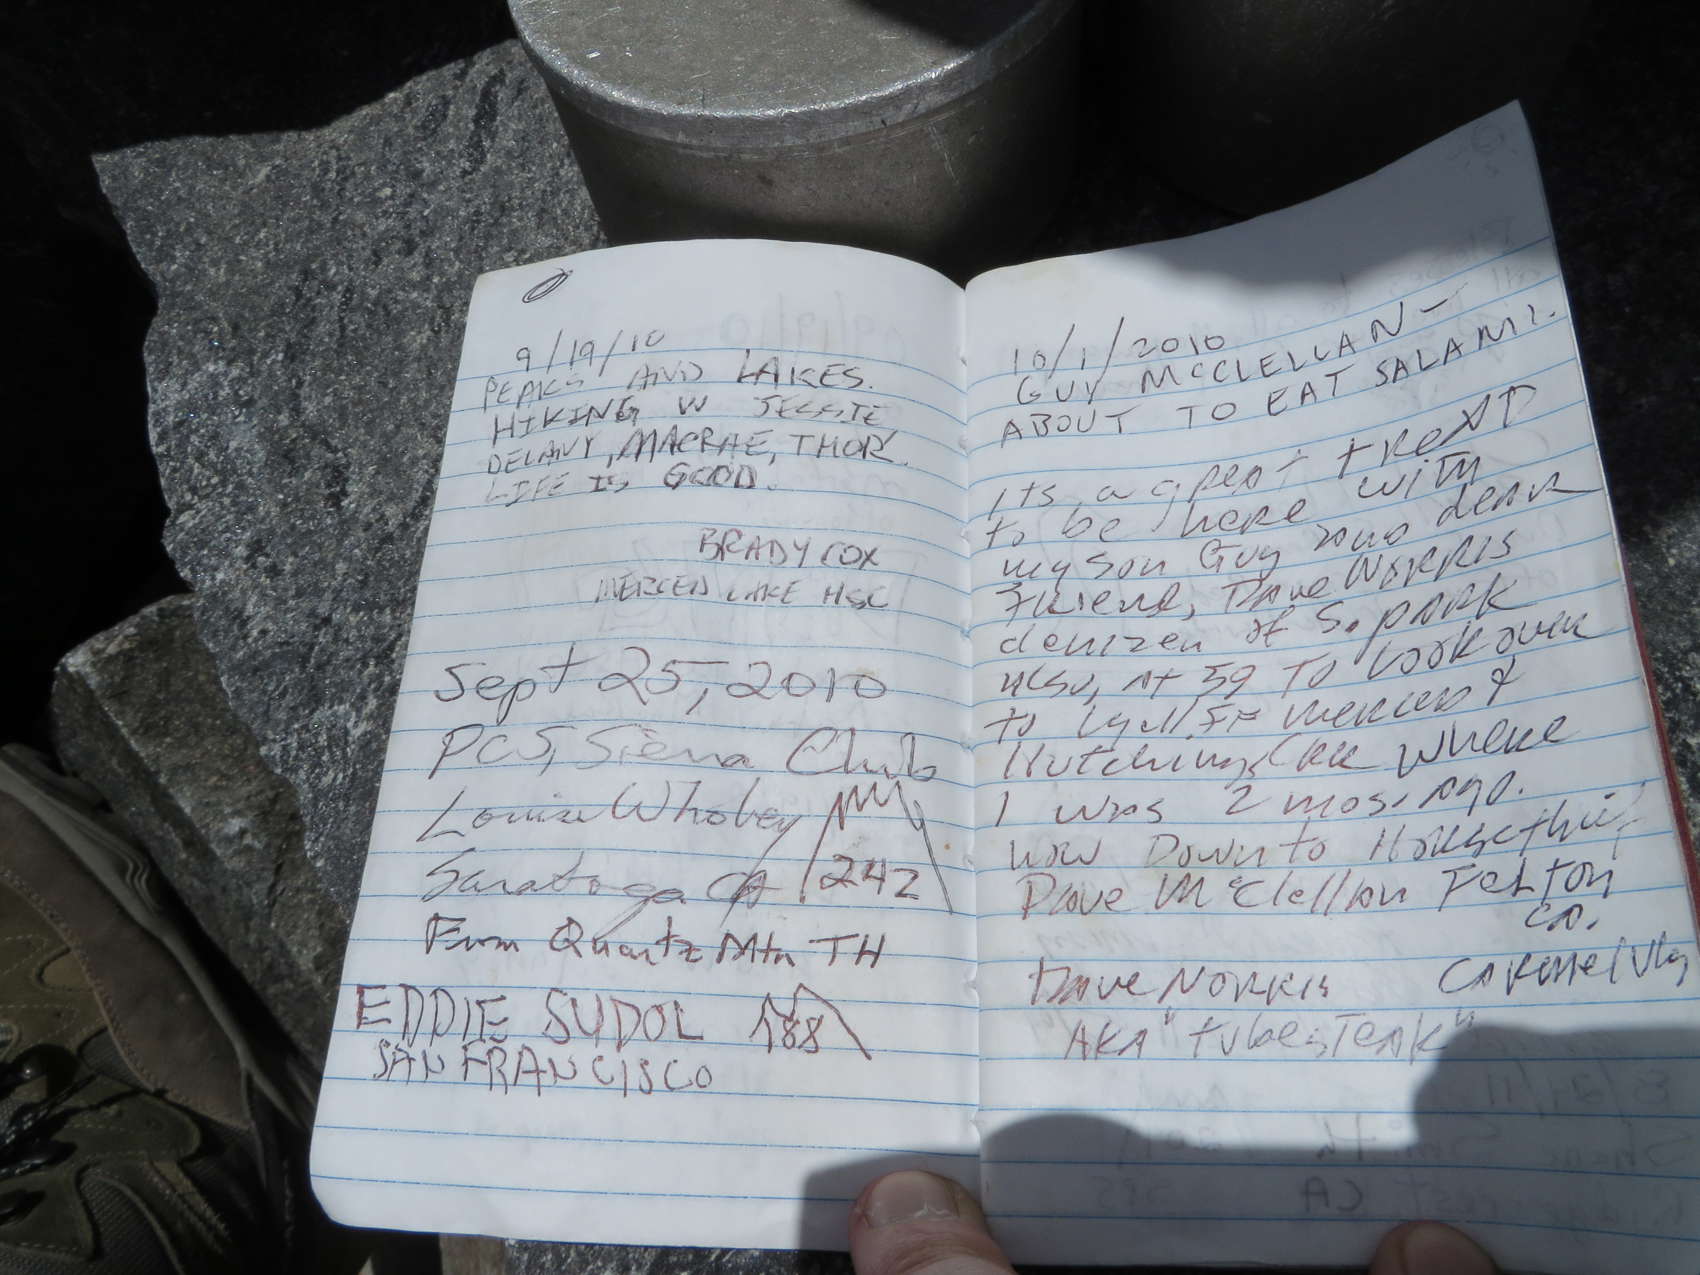 9/19/10
PEAKS AND LAKES.
HIKING W JESSIE
DELANY, MACRAE, THOR.
LIFE IS GOOD.
BRADY COX
MERCED LAKE HSC
Sept 25, 2010
PCS, Sierra Club
Louise Whobey
Saratoga CA 242
From Quartz Mtn TH
EDDIE SUDOL 188
SAN FRANCISCO
10/1/2010
GUY McCLELLAN -
ABOUT TO EAT SALAMI.
Its a great treat
to be here with
my son Guy and dear
Friend, Dave Norris
denizen of S. park
Also, at 59 To look over
to Lyell Fr merced &
Hutchings Crk where
I was 2 mos. ago.
now Down to Horsethief
Dave McClellan Felton
CA.
Dave Norris Carmel Vly
AKA "tubesteak"
8/24/11
Shane Smith
CA SPS